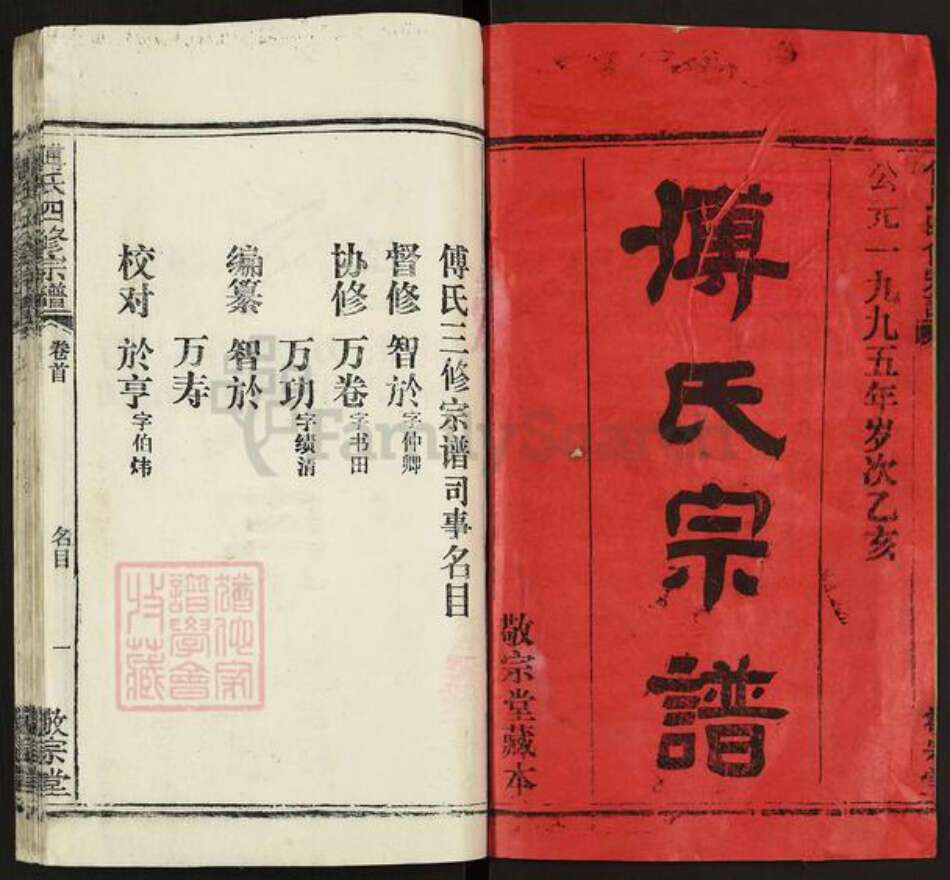 公元一九九五年岁次乙亥
傅氏宗譜
敬宗堂藏本
傅氏三修宗谱司事名目
督修 智於字仲卿
协修 万卷字书田
万功字绩清
编纂 智於
万寿
校对 於亨字伯炜
傅氏四修宗譜 卷首 名目 一 敬宗堂
FamilySearch